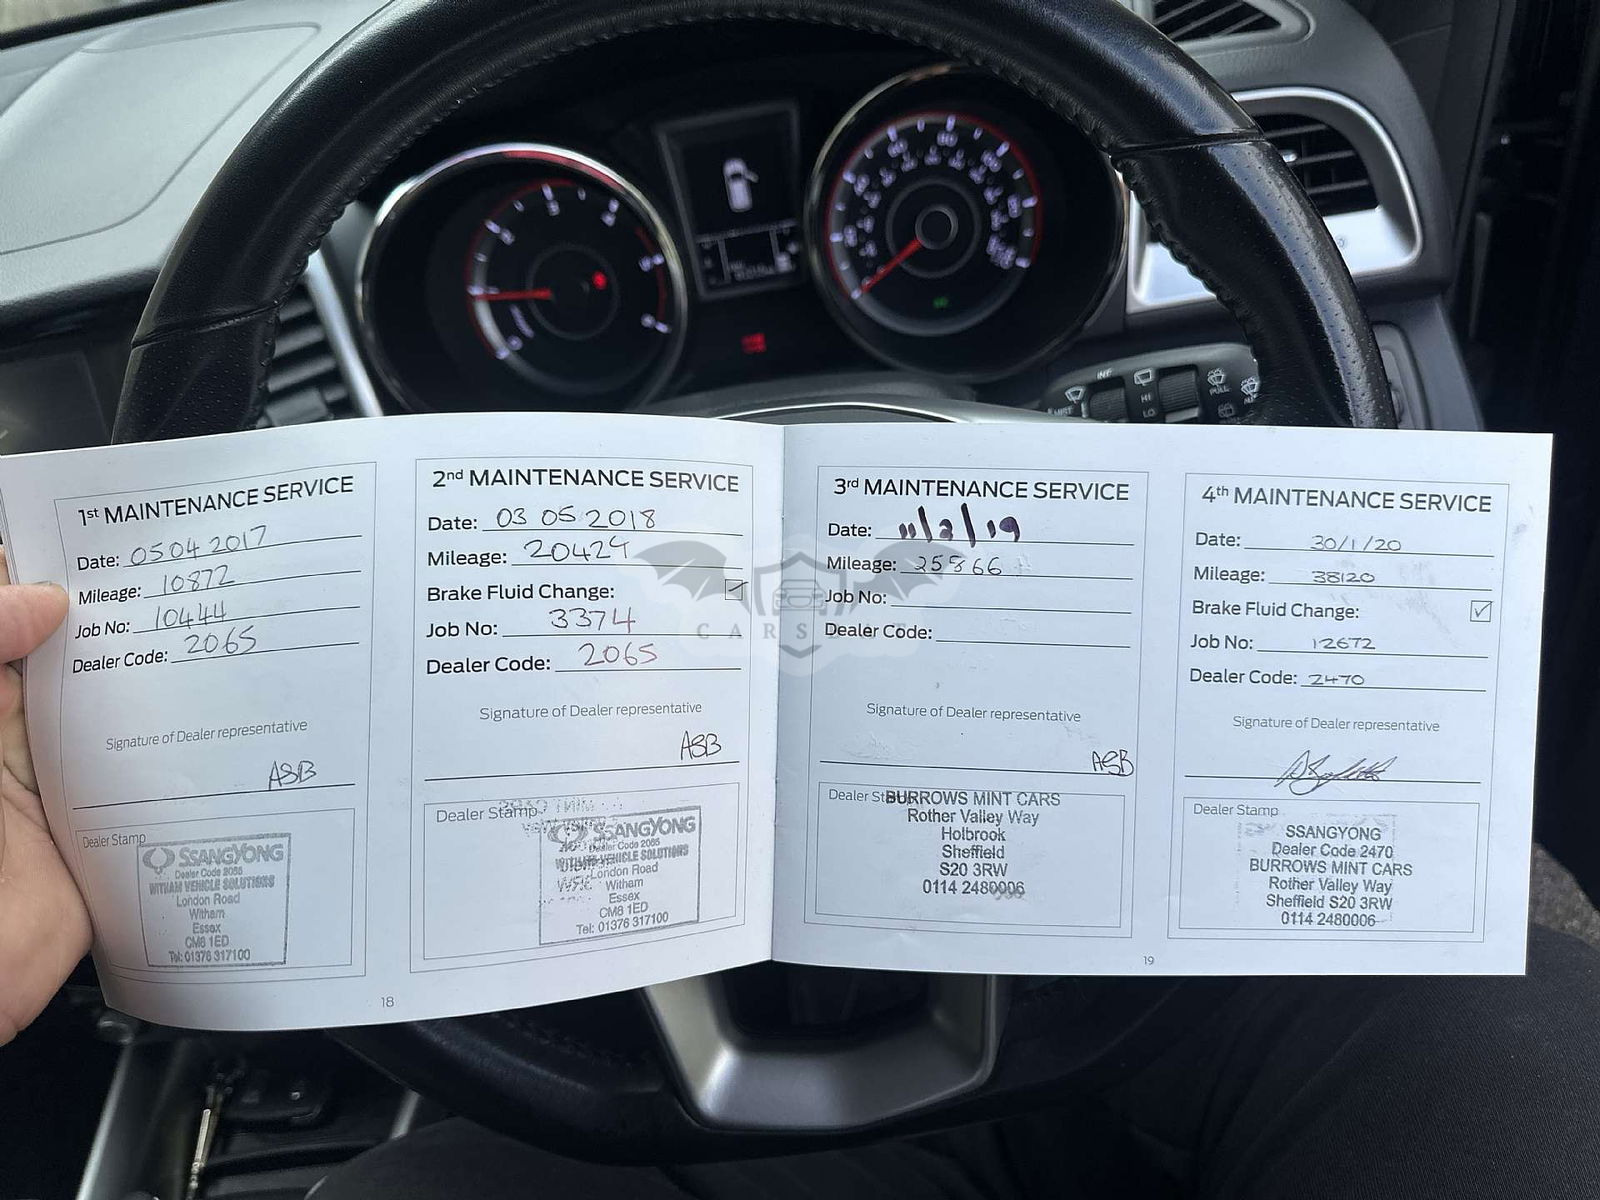 1st MAINTENANCE SERVICE
Date: 05 04 2017
Mileage: 10872
Job No: 10444
Dealer Code: 2065
Signature of Dealer representative
ASB
Dealer Stamp
SSANGYONG
Dealer Code 2065
WITHAM VEHICLE SOLUTIONS
London Road
Witham
Essex
CM8 1ED
Tel: 01376 317100
18
2nd MAINTENANCE SERVICE
Date: 03 05 2018
Mileage: 20424
Brake Fluid Change: ✓
Job No: 3374
Dealer Code: 2065
Signature of Dealer representative
ASB
Dealer Stamp
SSANGYONG
Dealer Code 2065
WITHAM VEHICLE SOLUTIONS
London Road
Witham
Essex
CM8 1ED
Tel: 01376 317100
3rd MAINTENANCE SERVICE
Date: 11/2/19
Mileage: 25866
Job No:
Dealer Code:
Signature of Dealer representative
ASB
Dealer Stamp
BURROWS MINT CARS
Rother Valley Way
Holbrook
Sheffield
S20 3RW
0114 2480006
19
4th MAINTENANCE SERVICE
Date: 30/1/20
Mileage: 38120
Brake Fluid Change: ✓
Job No: 12672
Dealer Code: 2470
Signature of Dealer representative
Dealer Stamp
SSANGYONG
Dealer Code 2470
BURROWS MINT CARS
Rother Valley Way
Sheffield S20 3RW
0114 2480006
INT
HI
LO
PULL